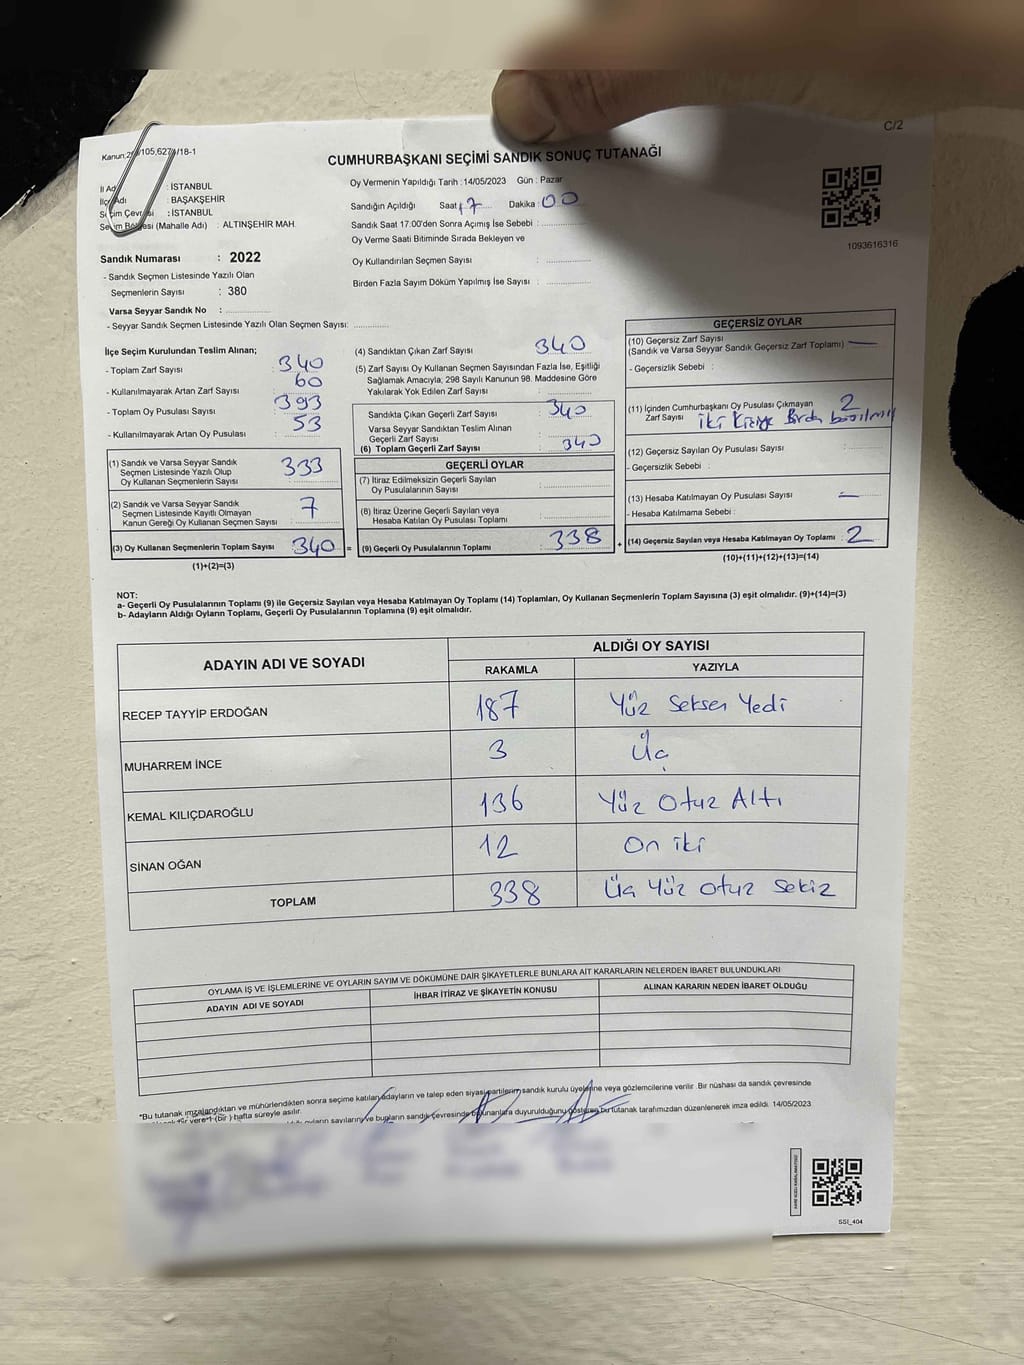 C/2
18-1
CUMHURBAŞKANI SEÇİMİ SANDIK SONUÇ TUTANAĞI
: İSTANBUL
: BAŞAKŞEHİR
: İSTANBUL
(Mahalle Adı) : ALTINŞEHİR MAH.
Oy Vermenin Yapıldığı Tarih : 14/05/2023 Gün : Pazar
Sandığın Açıldığı Saat 17 Dakika : 00
Sandık Saat 17:00'den Sonra Açımış İse Sebebi :
Oy Verme Saati Bitiminde Sırada Bekleyen ve
Oy Kullandırılan Seçmen Sayısı :
Birden Fazla Sayım Döküm Yapılmış İse Sayısı :
1093616316
Sandık Numarası : 2022
- Sandık Seçmen Listesinde Yazılı Olan
Seçmenlerin Sayısı : 380
Varsa Seyyar Sandık No :
- Seyyar Sandık Seçmen Listesinde Yazılı Olan Seçmen Sayısı:
İlçe Seçim Kurulundan Teslim Alınan;
- Toplam Zarf Sayısı : 340
- Kullanılmayarak Artan Zarf Sayısı : 60
- Toplam Oy Pusulası Sayısı : 393
- Kullanılmayarak Artan Oy Pusulası : 53
(1) Sandık ve Varsa Seyyar Sandık
Seçmen Listesinde Yazılı Olup
Oy Kullanan Seçmenlerin Sayısı : 333
(2) Sandık ve Varsa Seyyar Sandık
Seçmen Listesinde Kayıtlı Olmayan
Kanun Gereği Oy Kullanan Seçmen Sayısı : 7
(3) Oy Kullanan Seçmenlerin Toplam Sayısı : 340 =
(1)+(2)=(3)
(4) Sandıktan Çıkan Zarf Sayısı : 340
(5) Zarf Sayısı Oy Kullanan Seçmen Sayısından Fazla İse, Eşitliği
Sağlamak Amacıyla, 298 Sayılı Kanunun 98. Maddesine Göre
Yakılarak Yok Edilen Zarf Sayısı :
Sandıkta Çıkan Geçerli Zarf Sayısı : 340
Varsa Seyyar Sandıktan Teslim Alınan
Geçerli Zarf Sayısı :
(6) Toplam Geçerli Zarf Sayısı : 340
GEÇERLİ OYLAR
(7) İtiraz Edilmeksizin Geçerli Sayılan
Oy Pusulalarının Sayısı :
(8) İtiraz Üzerine Geçerli Sayılan veya
Hesaba Katılan Oy Pusulası Toplamı :
(9) Geçerli Oy Pusulalarının Toplamı : 338 +
GEÇERSİZ OYLAR
(10) Geçersiz Zarf Sayısı
(Sandık ve Varsa Seyyar Sandık Geçersiz Zarf Toplamı) : —
- Geçersizlik Sebebi :
(11) İçinden Cumhurbaşkanı Oy Pusulası Çıkmayan
Zarf Sayısı : 2
iki kişiye
(12) Geçersiz Sayılan Oy Pusulası Sayısı :
- Geçersizlik Sebebi :
(13) Hesaba Katılmayan Oy Pusulası Sayısı : —
- Hesaba Katılmama Sebebi :
(14) Geçersiz Sayılan veya Hesaba Katılmayan Oy Toplamı : 2
(10)+(11)+(12)+(13)=(14)
NOT:
a- Geçerli Oy Pusulalarının Toplamı (9) ile Geçersiz Sayılan veya Hesaba Katılmayan Oy Toplamı (14) Toplamları, Oy Kullanan Seçmenlerin Toplam Sayısına (3) eşit olmalıdır. (9)+(14)=(3)
b- Adayların Aldığı Oyların Toplamı, Geçerli Oy Pusulalarının Toplamına (9) eşit olmalıdır.
ADAYIN ADI VE SOYADI ALDIĞI OY SAYISI
RAKAMLA YAZIYLA
RECEP TAYYİP ERDOĞAN 187 Yüz Seksen Yedi
MUHARREM İNCE 3 Üç
KEMAL KILIÇDAROĞLU 136 Yüz Otuz Altı
SİNAN OĞAN 12 On iki
TOPLAM 338 Üç Yüz Otuz Sekiz
OYLAMA İŞ VE İŞLEMLERİNE VE OYLARIN SAYIM VE DÖKÜMÜNE DAİR ŞİKAYETLERLE BUNLARA AİT KARARLARIN NELERDEN İBARET BULUNDUKLARI
ADAYIN ADI VE SOYADI İHBAR İTİRAZ VE ŞİKAYETİN KONUSU ALINAN KARARIN NEDEN İBARET OLDUĞU
"Bu tutanak imzalandıktan ve mühürlendikten sonra seçime katılan adayların ve talep eden siyasi partilerin sandık kurulu üyelerine veya gözlemcilerine verilir. Bir nüshası da sandık çevresinde
(bir) hafta süreyle asılır.
oyların sayılarını ve bunların sandık çevresinde bulunanlara duyurulduğunu gösteren bu tutanak tarafımızdan düzenlenerek imza edildi. 14/05/2023
SSI_404